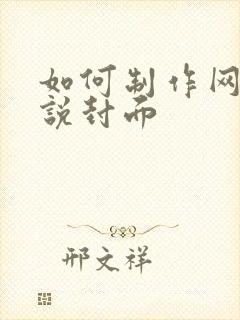 如何制作网
説封而
邢文祥